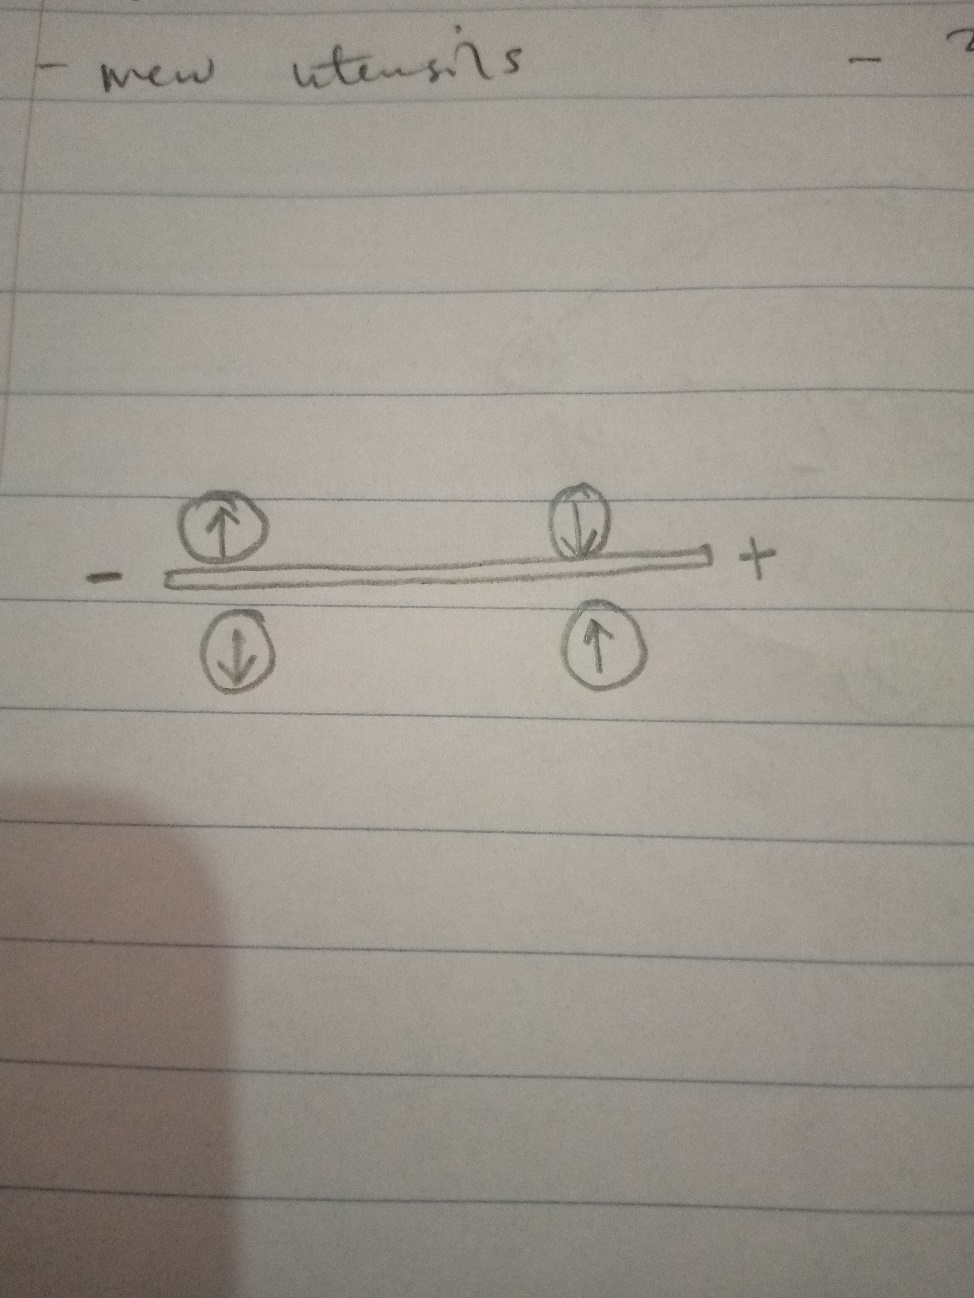 - new utensils -
- +